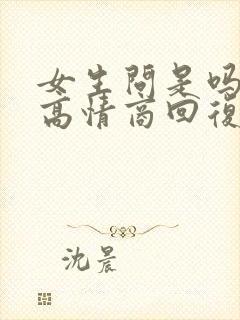 女生問是吗
高情商回復
沈晨